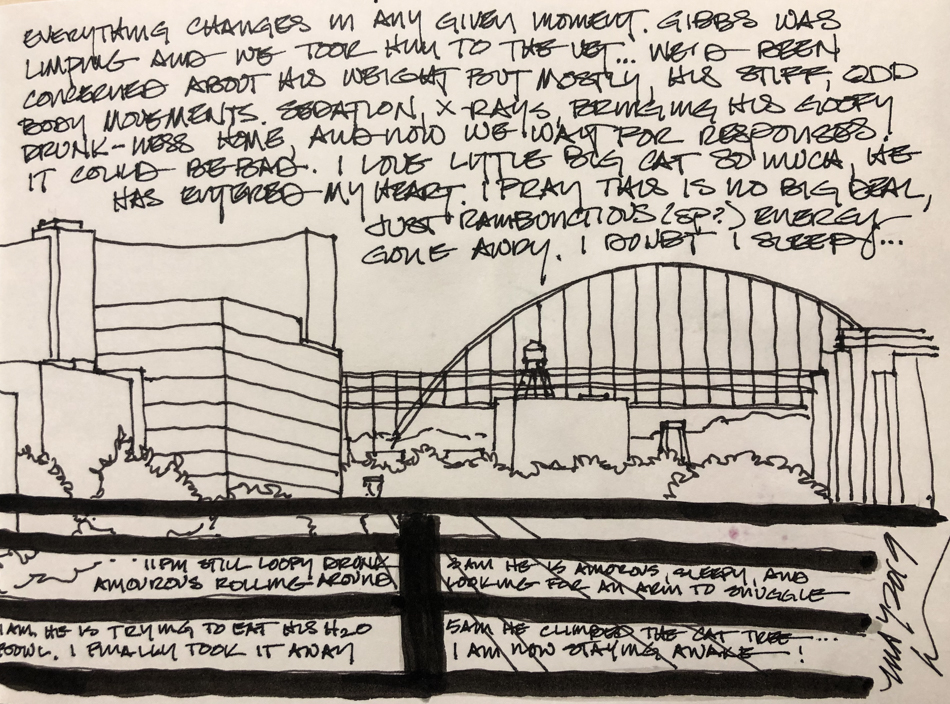 EVERYTHING CHANGES IN ANY GIVEN MOMENT. GIBBS WAS
LIMPING AND WE TOOK HIM TO THE VET... WE'D BEEN
CONCERNED ABOUT HIS WEIGHT BUT MOSTLY, HIS STIFF, ODD
BODY MOVEMENTS. SEDATION, X-RAYS, BRINGING HIS GOOFY
DRUNK-NESS HOME, AND NOW WE WAIT FOR RESPONSES.
IT COULD BE BAD. I LOVE LITTLE BIG CAT SO MUCH, HE
HAS ENTERED MY HEART. I PRAY THIS IS NO BIG DEAL,
JUST RAMBUNCTIOUS (SP?) ENERGY
GONE AWRY. I DOUBT I SLEEP...
11PM STILL LOOPY DRUNK
AMOUROUS ROLLING AROUND
3AM HE IS AMOROUS, SLEEPY, AND
LOOKING FOR AN ARM TO SNUGGLE
1AM HE IS TRYING TO EAT HIS H2O
BOWL. I FINALLY TOOK IT AWAY
5AM HE CLIMBED THE CAT TREE...
I AM NOW STAYING AWAKE!